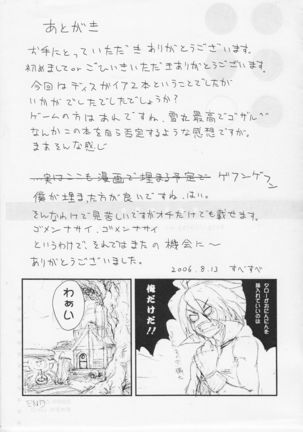 あとがき
お手にとっていただき ありがとうございます。
初めましてorごひいきいただきありがとうございます。
今回はディスガイア2本ということでしたが
いかがでしたでしたでしょうか?
ゲームの方はあれですね、雪丸最高でゴザル
なんかこの本を自ら否定するような感想ですが。
まぁそんな感じ
実はここも漫画で埋まる予定で ゲフンゲフン
僕が埋まった方が良いですね、はい。
そんなわけで見苦しいですがオチだけでも載せます。
ゴメンナサイ、ゴメンナサイ
というわけで、それではまたの機会に〜
ありがとうございました。
2006.8.13 すべすべ
俺だけだ!!
わぁい
END